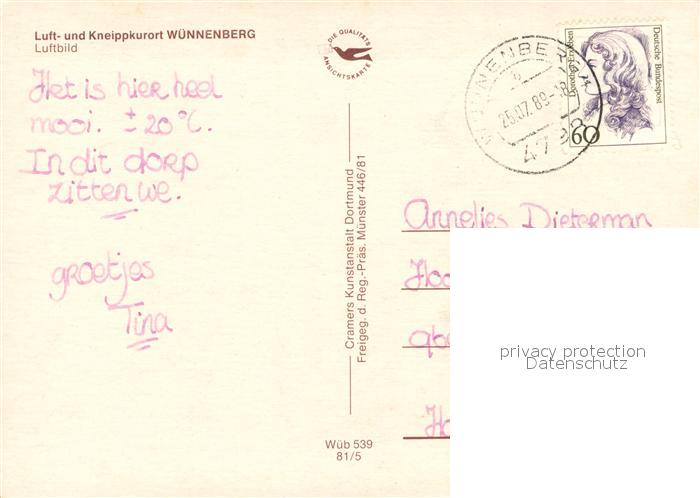 Luft- und Kneippkurort WÜNNENBERG
Luftbild
DIE QUALITÄTS
ANSICHTSKARTE
Het is hier heel
mooi. ± 20°C.
In dit dorp
zitten we.
groetjes
Tina
Cramers Kunstanstalt Dortmund
Freigeg. d. Reg.-Präs. Münster 446/81
Wüb 539
81/5
WÜNNENBERG
25.07.89
Dorothea Erxleben
Deutsche Bundespost
60
Annelies Dieterman
privacy protection
Datenschutz